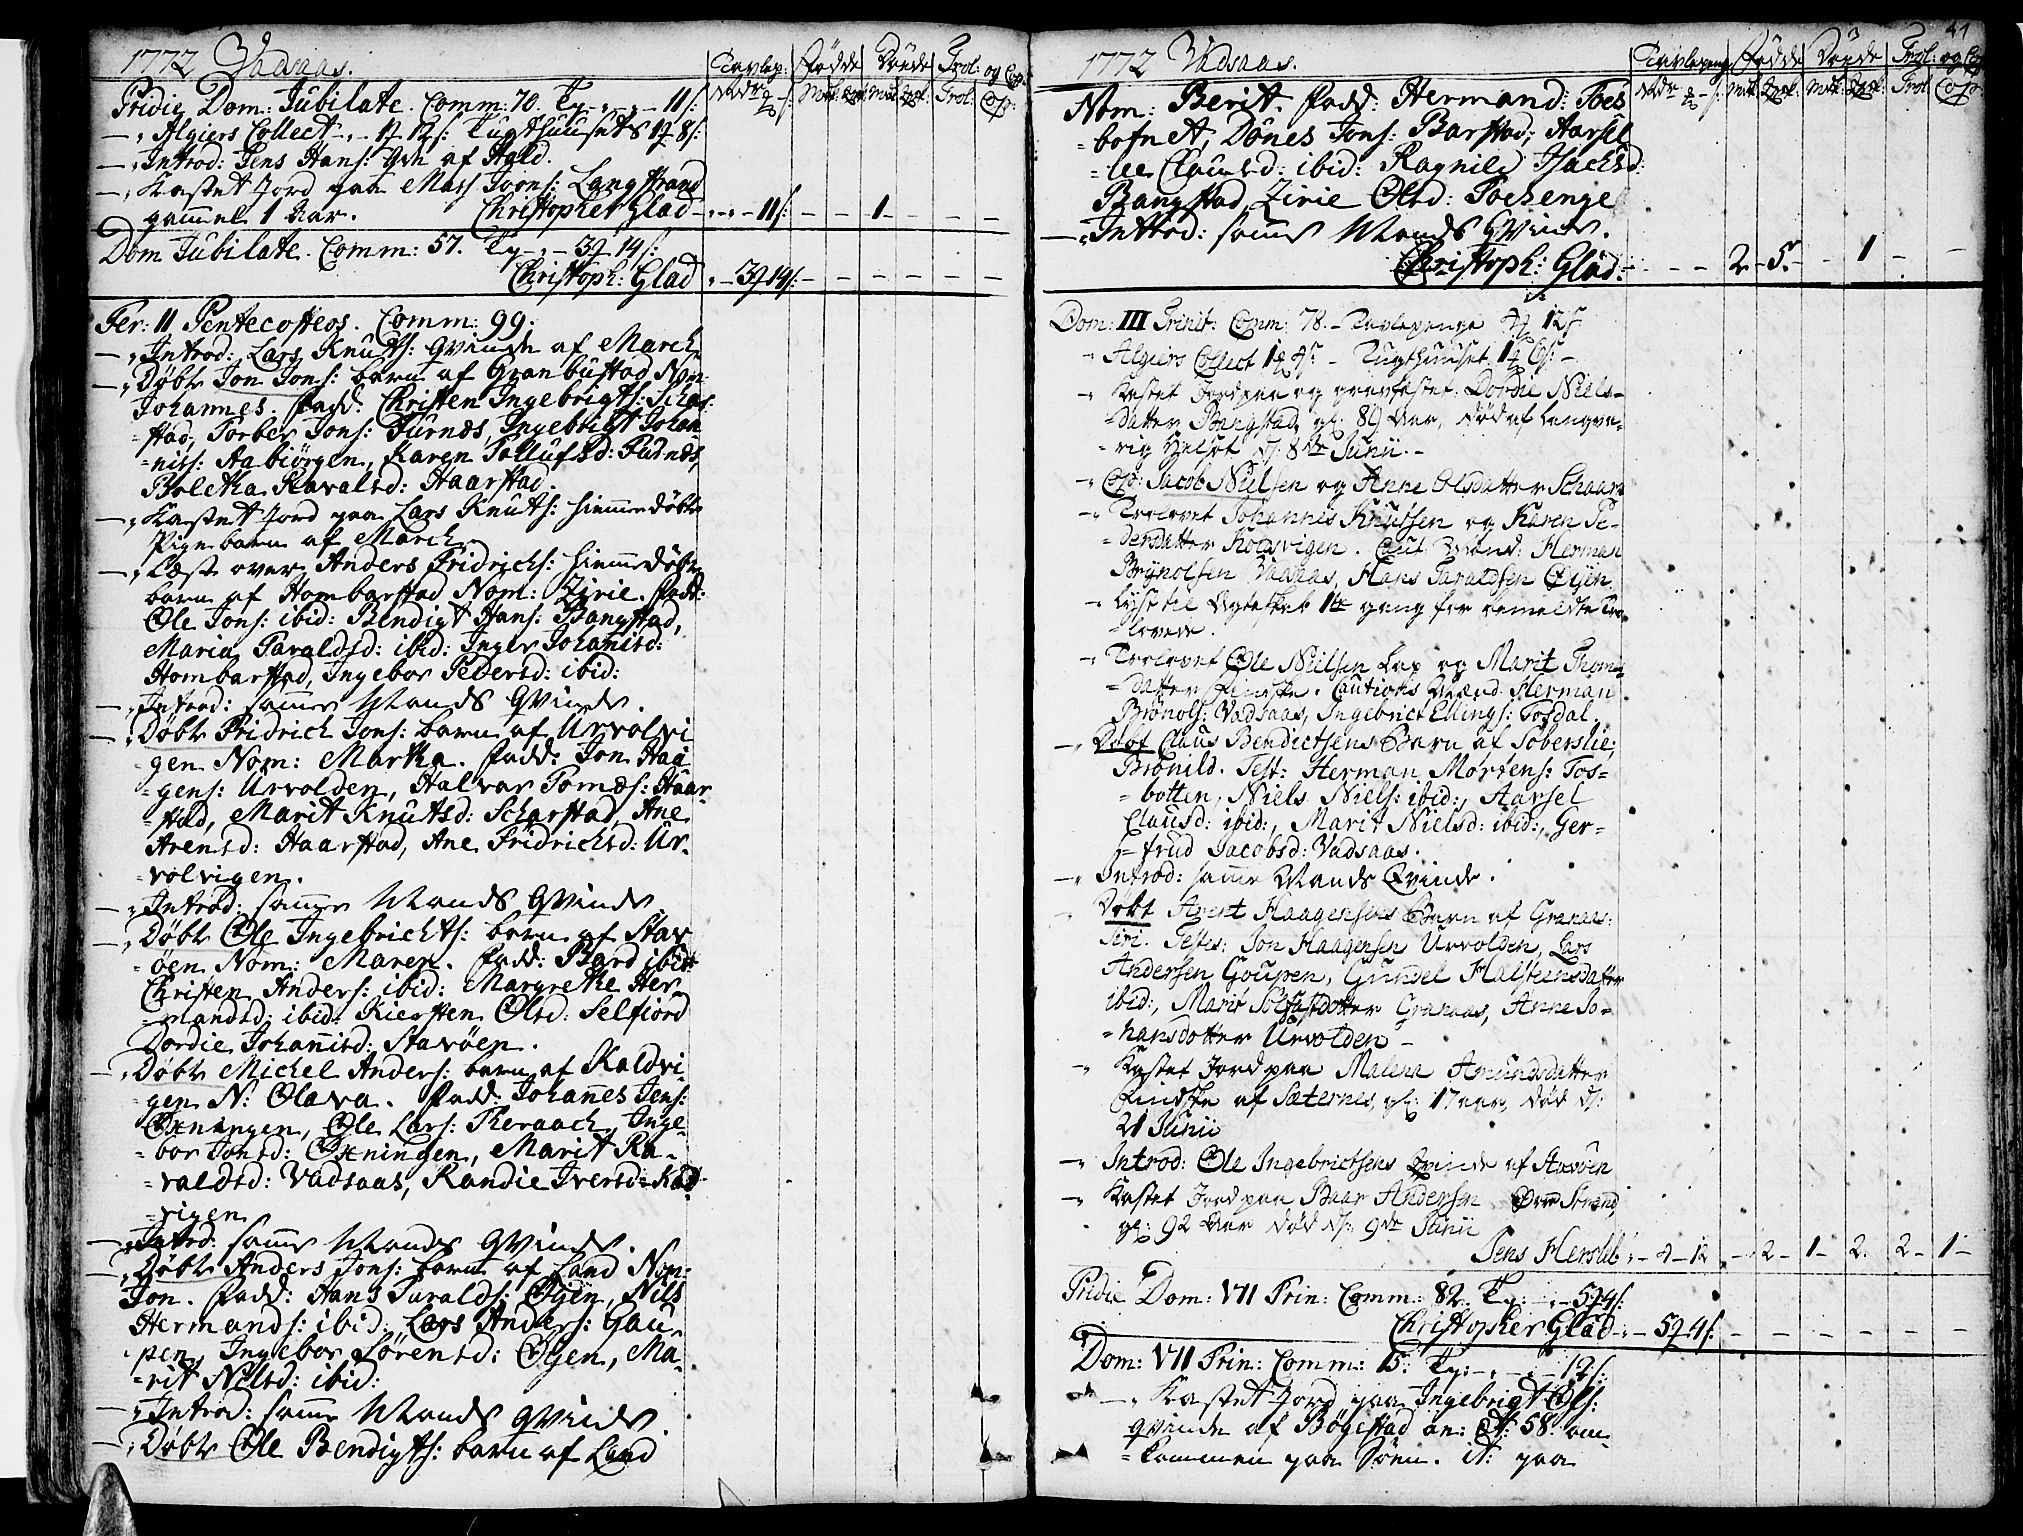 1772 Vadsaas.
Tavlep: Fødde Døude Trol: og Cop:
Pridie Dom: Jubilate. Comm: 70. Tp - „ - „ - 11 s:
Mk: Qvk: Mk: Qvk: Trol: Cop:
- „ Algiers Collect - „ - 12 s: Tugthuusets 8 s:
- „ Introd: Jens Hans: Qvn af Hald.
- „ Kastet Jord paa Mass Joens: Langstrand
gammel 1 Aar. Christopher Glad - „ - „ - 11 s: - - 1 - - -
Dom Jubilate. Comm: 57. Tp - „ - 3 14 s:
Christoph: Glad „ - 3 14 s: - - - - - -
Fer: II Pentecosteos. Comm: 99:
- „ Introd: Lars Knuts: Qvinde af March
- „ Døbt Jon Jons: barn af Granbustad Nom:
Johannes. Fadd: Christen Ingebrigts: Schar-
-stad, Torber Jons: Furnæs, Ingebrigt Johan-
-nis: Aabiørgen, Karen Tollufsd: Fudnæs,
Boletha Ravalsd: Haarstad.
- „ Kastet Jord paa Lars Knuts: hiemmedøbte
Pigebarn af March
- „ Læst over Anders Fridrichs: hiemmedøbte
barn af Hombarstad Nom: Zirie. Fadd:
Ole Jons: ibid: Bendigt Hans: Bangstad,
Maria Taraldsd: ibid: Inger Johanisd:
Hombarstad, Ingebor Pedersd: ibid:
- „ Introd: samme Mands Qvinde.
- „ Døbt Fridrich Jons: barn af Urvolvi-
gen Nom: Martha. Fadd: Jon Haa-
-gens: Urvolden, Halvar Tomæs: Haar-
-stad, Marit Knutsd: Scharstad, Ane
Arensd: Haarstad, Ane Fridrichsd: Ur-
-volvigen.
- „ Introd: samme Mands Qvinde.
- „ Døbt Ole Ingebrichts: barn af Stav-
-øen Nom: Maren. Fadd: Bard ibid:
Christen Anders: ibid: Margrethe Her-
-mandsd: ibid: Kiersten Olsd: Selfiord
Dordie Johanisd: Stavøen.
- „ Døbt Michel Anders: barn af Kaldvi-
-gen N: Olava. Fadd: Johannes Jens:
Øxningen, Ole Lars: Theraach, Inge-
-bor Jonsd: Øxningen, Marit Ra-
-valdsd: Vadsaas, Randie Iversd: Kald-
-vigen
- „ Introd: samme Mands Qvinde.
- „ Døbt Anders Jons: barn af Land Nom:
Jon. Fadd: Hans Taralds: Øyen, Nils
Hermands: ibid: Lars Anders: Gau-
pen, Ingebor Sørensd: Øyen, Ma-
-rit Nilsd: ibid:
- „ Introd: samme Mands Qvinde.
- „ Døbt Ole Bendigts: barn af Land
1772 Vadsaas.
Tavlepenge Fødde Døude Trol: og Cop:
Mk: Qvk: Mk: Qvk: Trol: Cop:
Nom: Berit. Fadd: Hermand: Foes-
-botnet, Dønes Jons: Barstad, Aarsel-
-lee Clausd: ibid: Ragnild Isachsd:
Bangstad, Zirie Olsd: Foesenge
- „ Introd: samme Mands Qvinde.
Christoph: Glad: - - - 2 - 5 - - 1 - -
Dom: III Trinit: Comm: 78. - Tavlepenge 12 s
- „ Algiers Collect 1 4 s: - Tugthuuset 1 6 s: -
- „ Kastet Jord paa og gravfæstet Dordie Niels-
-datter Bangstad gl: 89 Aar, død af langva-
-rig helsot d: 8de Junii. -
- „ Cop: Jacob Nielsen og Anne Olsdatter Schaar
- „ Trolovet Johannes Knutsen og Karen Pe-
-dersdatter Kolsvigen. Caut: Mænd: Herman
Brynolsen Vadsaas, Hans Taraldsen Øyen
- „ Lyst til Ægteskab 1te gang for bemeldte Tro-
-lovede.
- „ Trolovet Ole Nielsen Lap og Marit Thom-
-datter Finske. Cautions Mænd Herman
Brønols: Vadsaas, Ingebrict Ellings: Fosdal.
- „ Døbt Claus Bendictsens Barn af Soberslie,
Brønild. Test: Herman Mortens: Fos-
-botten, Niels Niels: ibid:, Aarsel
Clausd: ibid:, Marit Nielsd: ibid:, Ger-
-trud Jacobsd: Vadsaas.
- „ Introd: samme Mands Qvinde.
- „ Døbt Arent Haagensens Barn af Granaas:
Siri. Testes: Jon Haagensen Urvolden, Lars
Andersen Goupen, Gunnel Halsteensdatter
ibid:, Marit Solfastdotter Granaas, Anne Jo-
-hansdotter Urvolden -
- „ Kastet Jord paa Malena Amundsdatter
Findske af Sæternes, gl: 17 aar, død d:
21 Junii
- „ Introd: Ole Ingebrictsens Qvinde af Stavøen
- „ Kastet Jord paa Baar Andersen Ørne Strand,
gl: 92 Aar død d: 9de Junii
Jens Hersleb „ - 4 - 12 - 2 - 1 - 2. 2 - 1 -
Pridie Dom: VII Trin: Comm: 82. Tp: - „ - 5 4 s:
Christopher Glad - „ - 5 4 s: - - - - - -
Dom: VII Trin: Comm: 15. Tp: - „ - „ - 12 s:
- „ Kastet Jord paa Ingebrigt Ols:
qvinde af Bøgestad an: Æt: 58. om-
-kommen paa Søen. it: paa